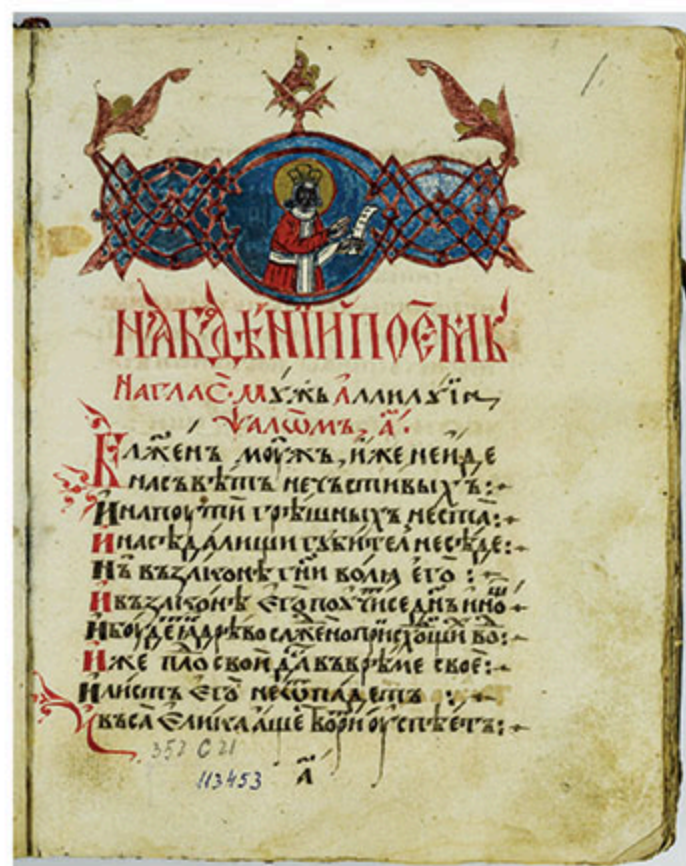 НА БДѢНІИ ПОЕМЬ
На гла҃с. мѹжь Аллилѹїа
Ѱалѡмъ, а҃.
Блаже́нъ моужъ, иже не иде
на съвѣтъ нечьстивыхъ:
И на поути грѣшныхъ не ста:
И на сѣдалищи гѹбител не сѣде:
Нѫ въ законѣ гн҃и волꙗ его:
И въ законѣ его
И бѹдет ꙗ дрѣво сажено при
Иже пло свои да въ врѣме свое:
И листъ его не ѿпадетъ:
И въсѣ елика аще творит оуспѣетъ:
352 С 21
113453
а҃